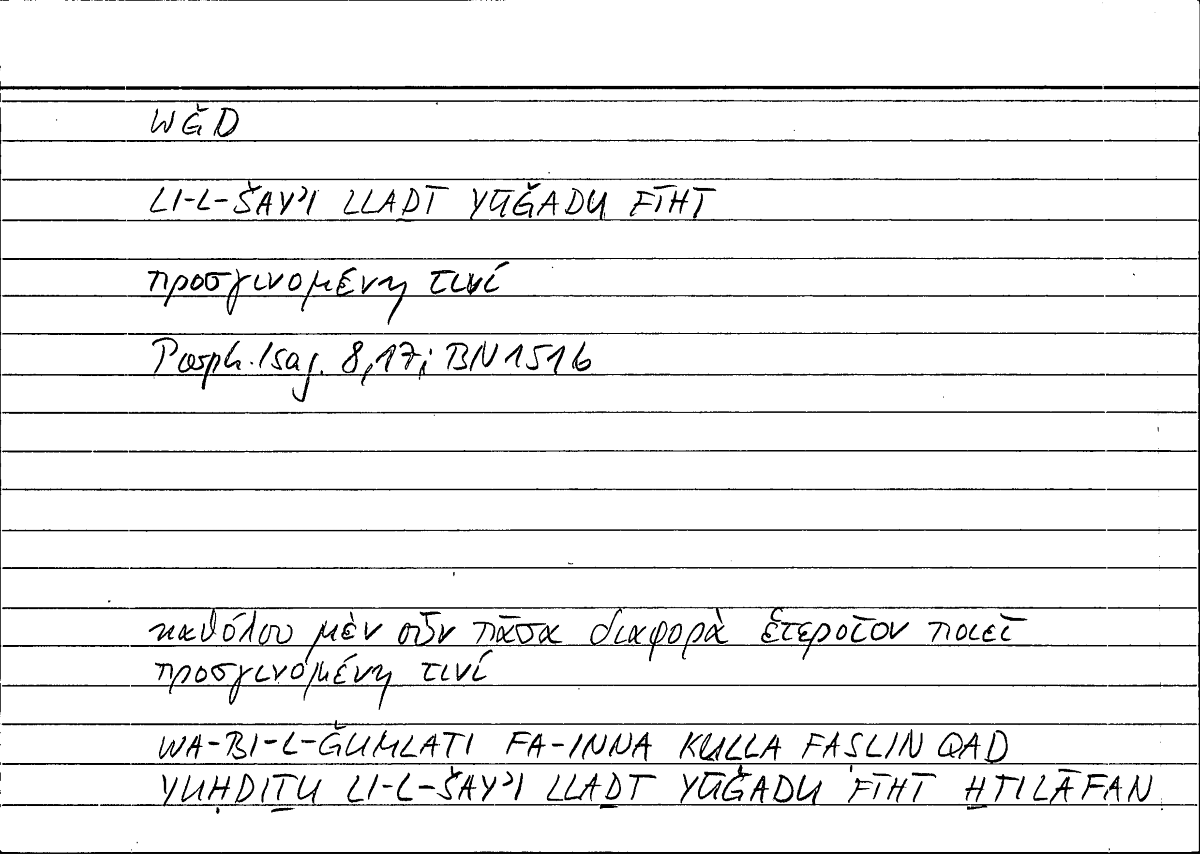 WǦD
LI-L-ŠAYʾI LLAḎĪ YŪǦADU FĪHĪ
προσγινομένη τινί
Porph. Isag. 8,17; BN 151b
καθόλου μὲν οὖν πᾶσα διαφορὰ ἑτεροῖον ποιεῖ
προσγινομένη τινί
WA-BI-L-ǦUMLATI FA-INNA KULLA FASLIN QAD
YUḤDIṮU LI-L-ŠAYʾI LLAḎĪ YŪǦADU FĪHĪ ḪTILĀFAN